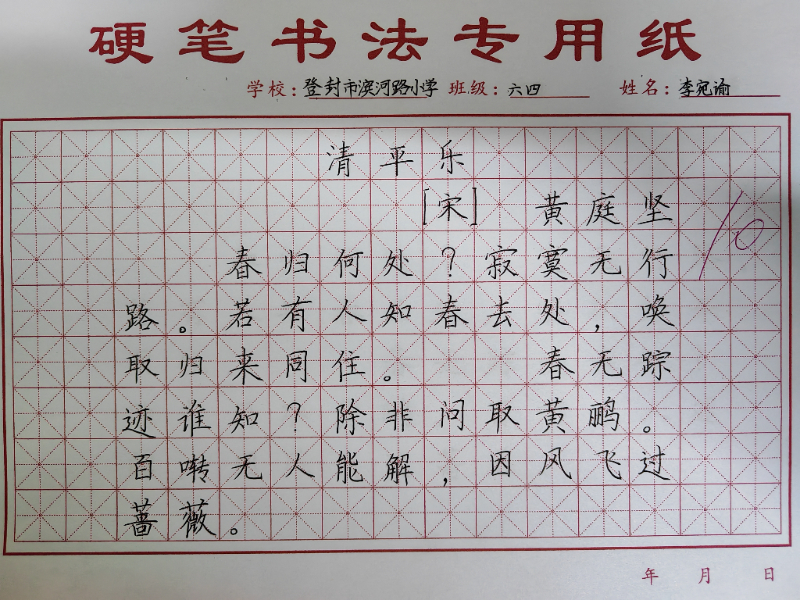 硬笔书法专用纸
学校：登封市滨河路小学 班级：六四 姓名：李宛谕
清平乐
[宋] 黄庭坚
10
春归何处？寂寞无行
路。若有人知春去处，唤
取归来同住。 春无踪
迹谁知？除非问取黄鹂。
百啭无人能解，因风飞过
蔷薇。
年 月 日